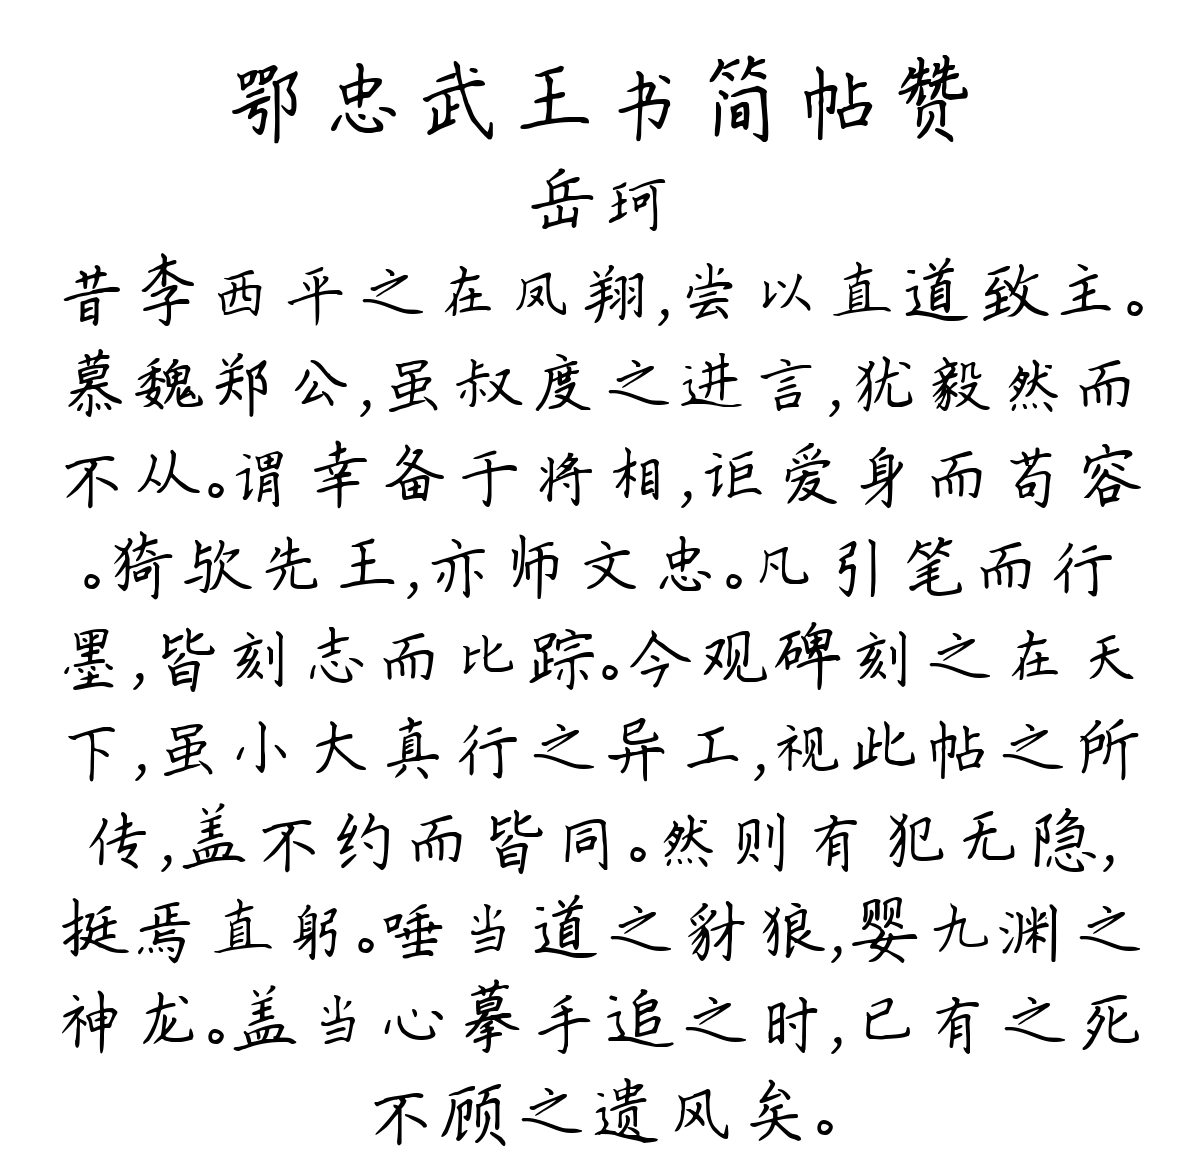 鄂忠武王书简帖赞
岳珂
昔李西平之在凤翔,尝以直道致主。
慕魏郑公,虽叔度之进言,犹毅然而
不从。谓幸备于将相,讵爱身而苟容
。猗欤先王,亦师文忠。凡引笔而行
墨,皆刻志而比踪。今观碑刻之在天
下,虽小大真行之异工,视此帖之所
传,盖不约而皆同。然则有犯无隐,
挺焉直躬。唾当道之豺狼,婴九渊之
神龙。盖当心摹手追之时,已有之死
不顾之遗风矣。